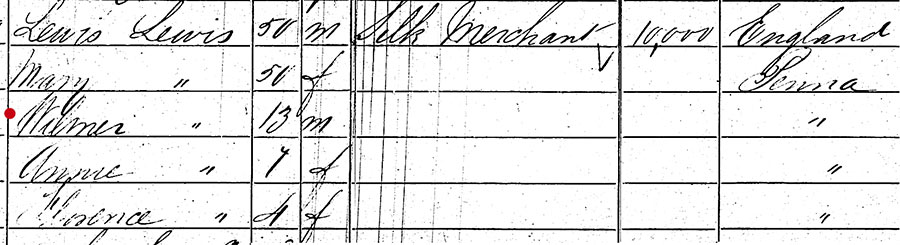 Lewis Lewis 50 m Silk Merchant 10,000 England
Mary " 50 f Penna
Wilmer " 13 m "
Annie " 7 f "
Florence " 4 f "